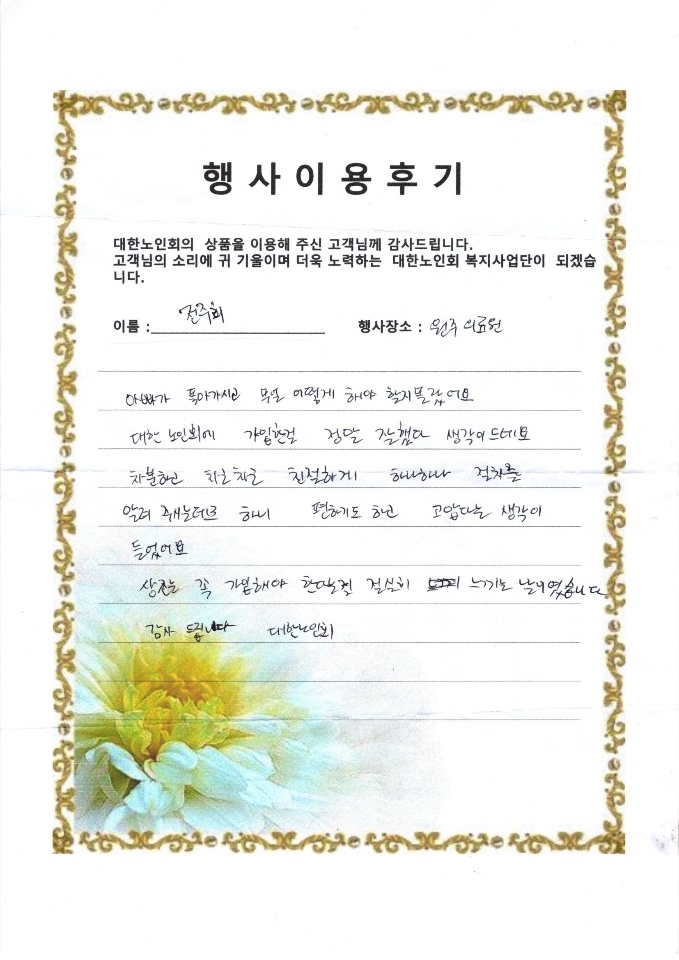 행사이용후기
대한노인회의 상품을 이용해 주신 고객님께 감사드립니다.
고객님의 소리에 귀 기울이며 더욱 노력하는 대한노인회 복지사업단이 되겠습
니다.
이름 : 전주희 행사장소 : 원주 의료원
아빠가 돌아가시고 무얼 어떻게 해야 할지몰랐어요
대한 노인회에 가입한걸 정말 잘했다 생각이 드네요
차분하고 차근차근 친절하게 하나하나 절차를
알려 주시는데로 하니 편하기도 하고 고맙다는 생각이
들었어요
상조는 꼭 가입해야 한다는것 절실히 느끼는 날이였습니다
감사 드립니다 대한노인회